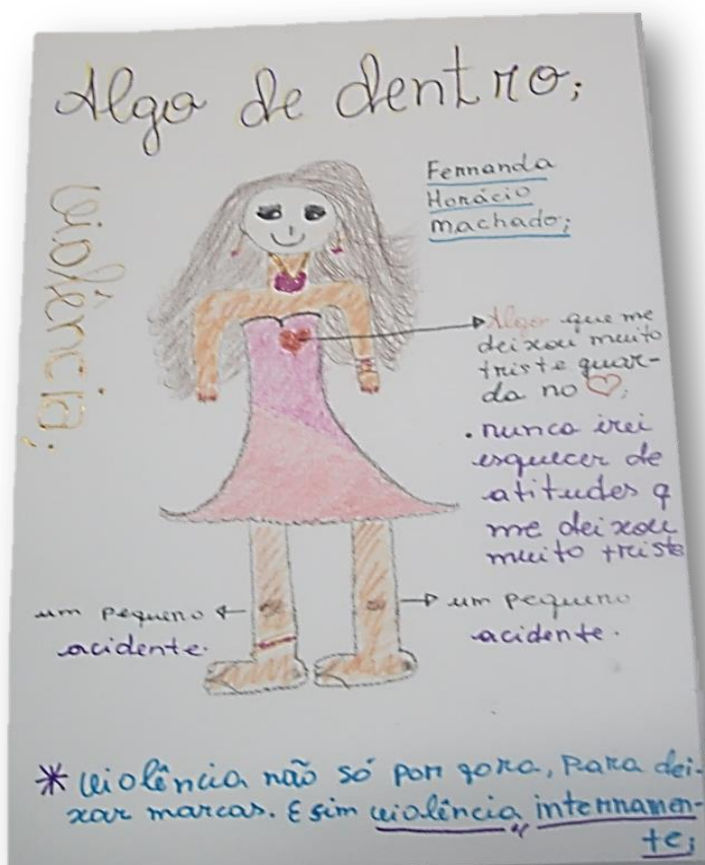 Algo de dentro;
violência;
Fernanda
Horácio
machado;
Algo que me
deixou muito
triste guar-
do no ♡;
. nunca irei
esquecer de
atitudes q
me deixou
muito triste
um pequeno
acidente.
um pequeno
acidente.
* violência não só por fora, para dei-
xar marcas. E sim violência internamen-
te;